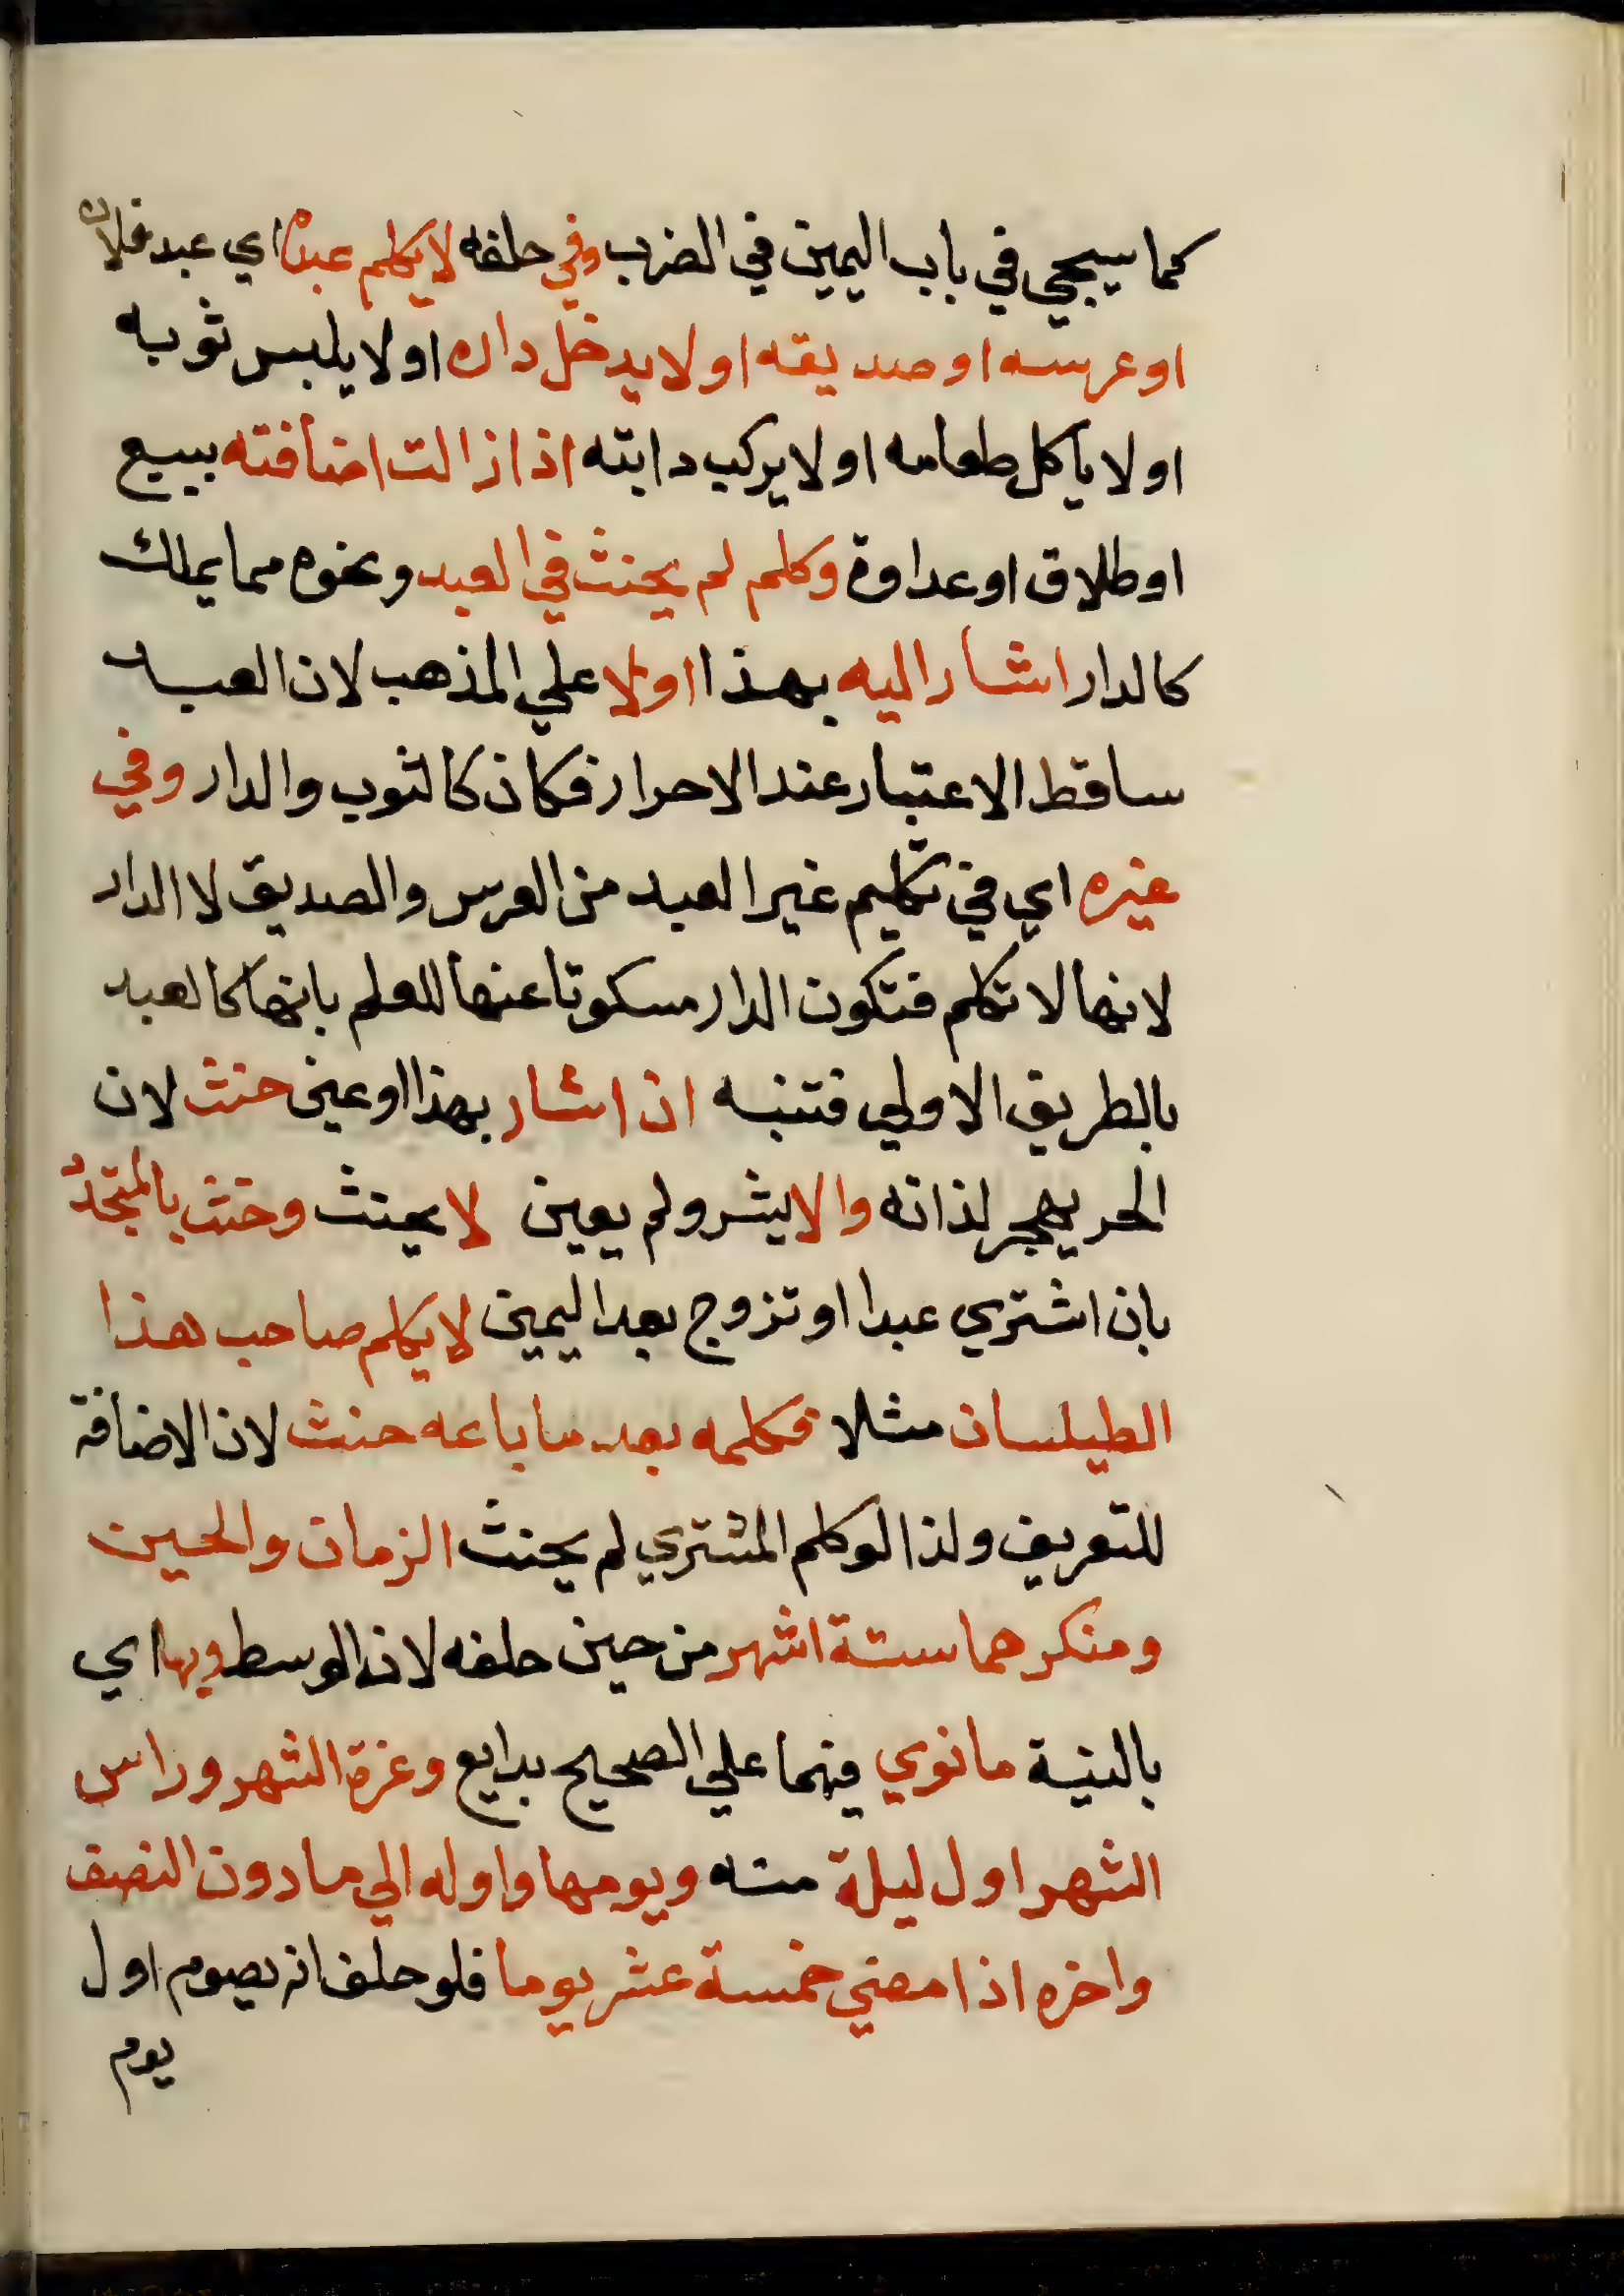 كما سيجي في باب اليمين في الضرب وفي حلفه لا يكلم عبده اي عبد فلان
او عرسه او صديقه او لا يدخل داره او لا يلبس ثوبه
او لا ياكل طعامه او لا يركب دابته اذا زالت اضافته ببيع
او طلاق او عداوة وكلم لم يحنث في العبد ونحوه مما يملك
كالدار اشار اليه بهذا اولا علي المذهب لان العبد
ساقط الاعتبار عند الاحرار فكان كالثوب والدار وفي
غيره اي في تكليم غير العبد من العرس والصديق لا الدار
لانها لا تكلم فتكون الدار مسكوتا عنها للعلم بانها كالعبد
بالطريق الاولي فتنبه ان اشار بهذا او عين حنث لان
الحر يهجر لذاته والا يشر ولم يعين لا يحنث وحنث بالمتجدد
بان اشتري عبدا او تزوج بعد اليمين لا يكلم صاحب هذا
الطيلسان مثلا فكلمه بعد ما باعه حنث لان الاضافة
للتعريف ولذا لو كلم المشتري لم يحنث الزمان والحين
ومنكرهما ستة اشهر من حين حلفه لانه الوسط وبها اي
بالنية ما نوي فيهما علي الصحيح بدايع وغرة الشهر وراس
الشهر اول ليلة منه ويومها واوله الي ما دون النصف
واخره اذا مضي خمسة عشر يوما فلو حلف انه يصوم اول
يوم